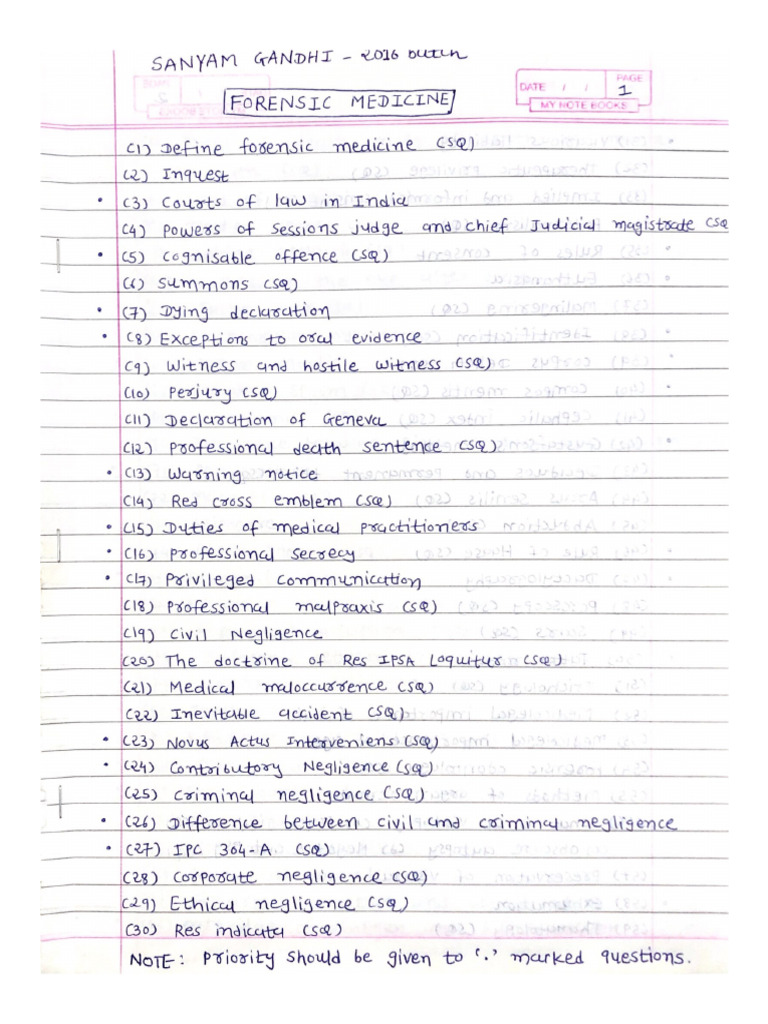 SANYAM GANDHI - 2016 Batch
DATE / / PAGE 1
MY NOTE BOOKS
FORENSIC MEDICINE
(1) Define forensic medicine (SQ)
(2) Inquest
• (3) Courts of law in India
(4) Powers of sessions judge and chief Judicial magistrate (SQ
• (5) Cognisable offence (SQ)
(6) Summons (SQ)
• (7) Dying declaration
• (8) Exceptions to oral evidence
(9) Witness and hostile witness (SQ)
(10) Perjury (SQ)
(11) Declaration of Geneva
(12) Professional death sentence (SQ)
• (13) Warning notice
(14) Red cross emblem (SQ)
• (15) Duties of medical practitioners
• (16) Professional secrecy
• (17) Privileged communication
(18) Professional malpraxis (SQ)
(19) Civil Negligence
(20) The doctrine of Res IPSA Loquitur (SQ)
(21) Medical maloccurrence (SQ)
(22) Inevitable accident (SQ)
• (23) Novus Actus Interveniens (SQ)
• (24) Contributory Negligence (SQ)
(25) Criminal negligence (SQ)
• (26) Difference between civil and criminal negligence
• (27) IPC 304-A (SQ)
(28) Corporate negligence (SQ)
(29) Ethical negligence (SQ)
(30) Res indicata (SQ)
NOTE: Priority should be given to '.' marked questions.